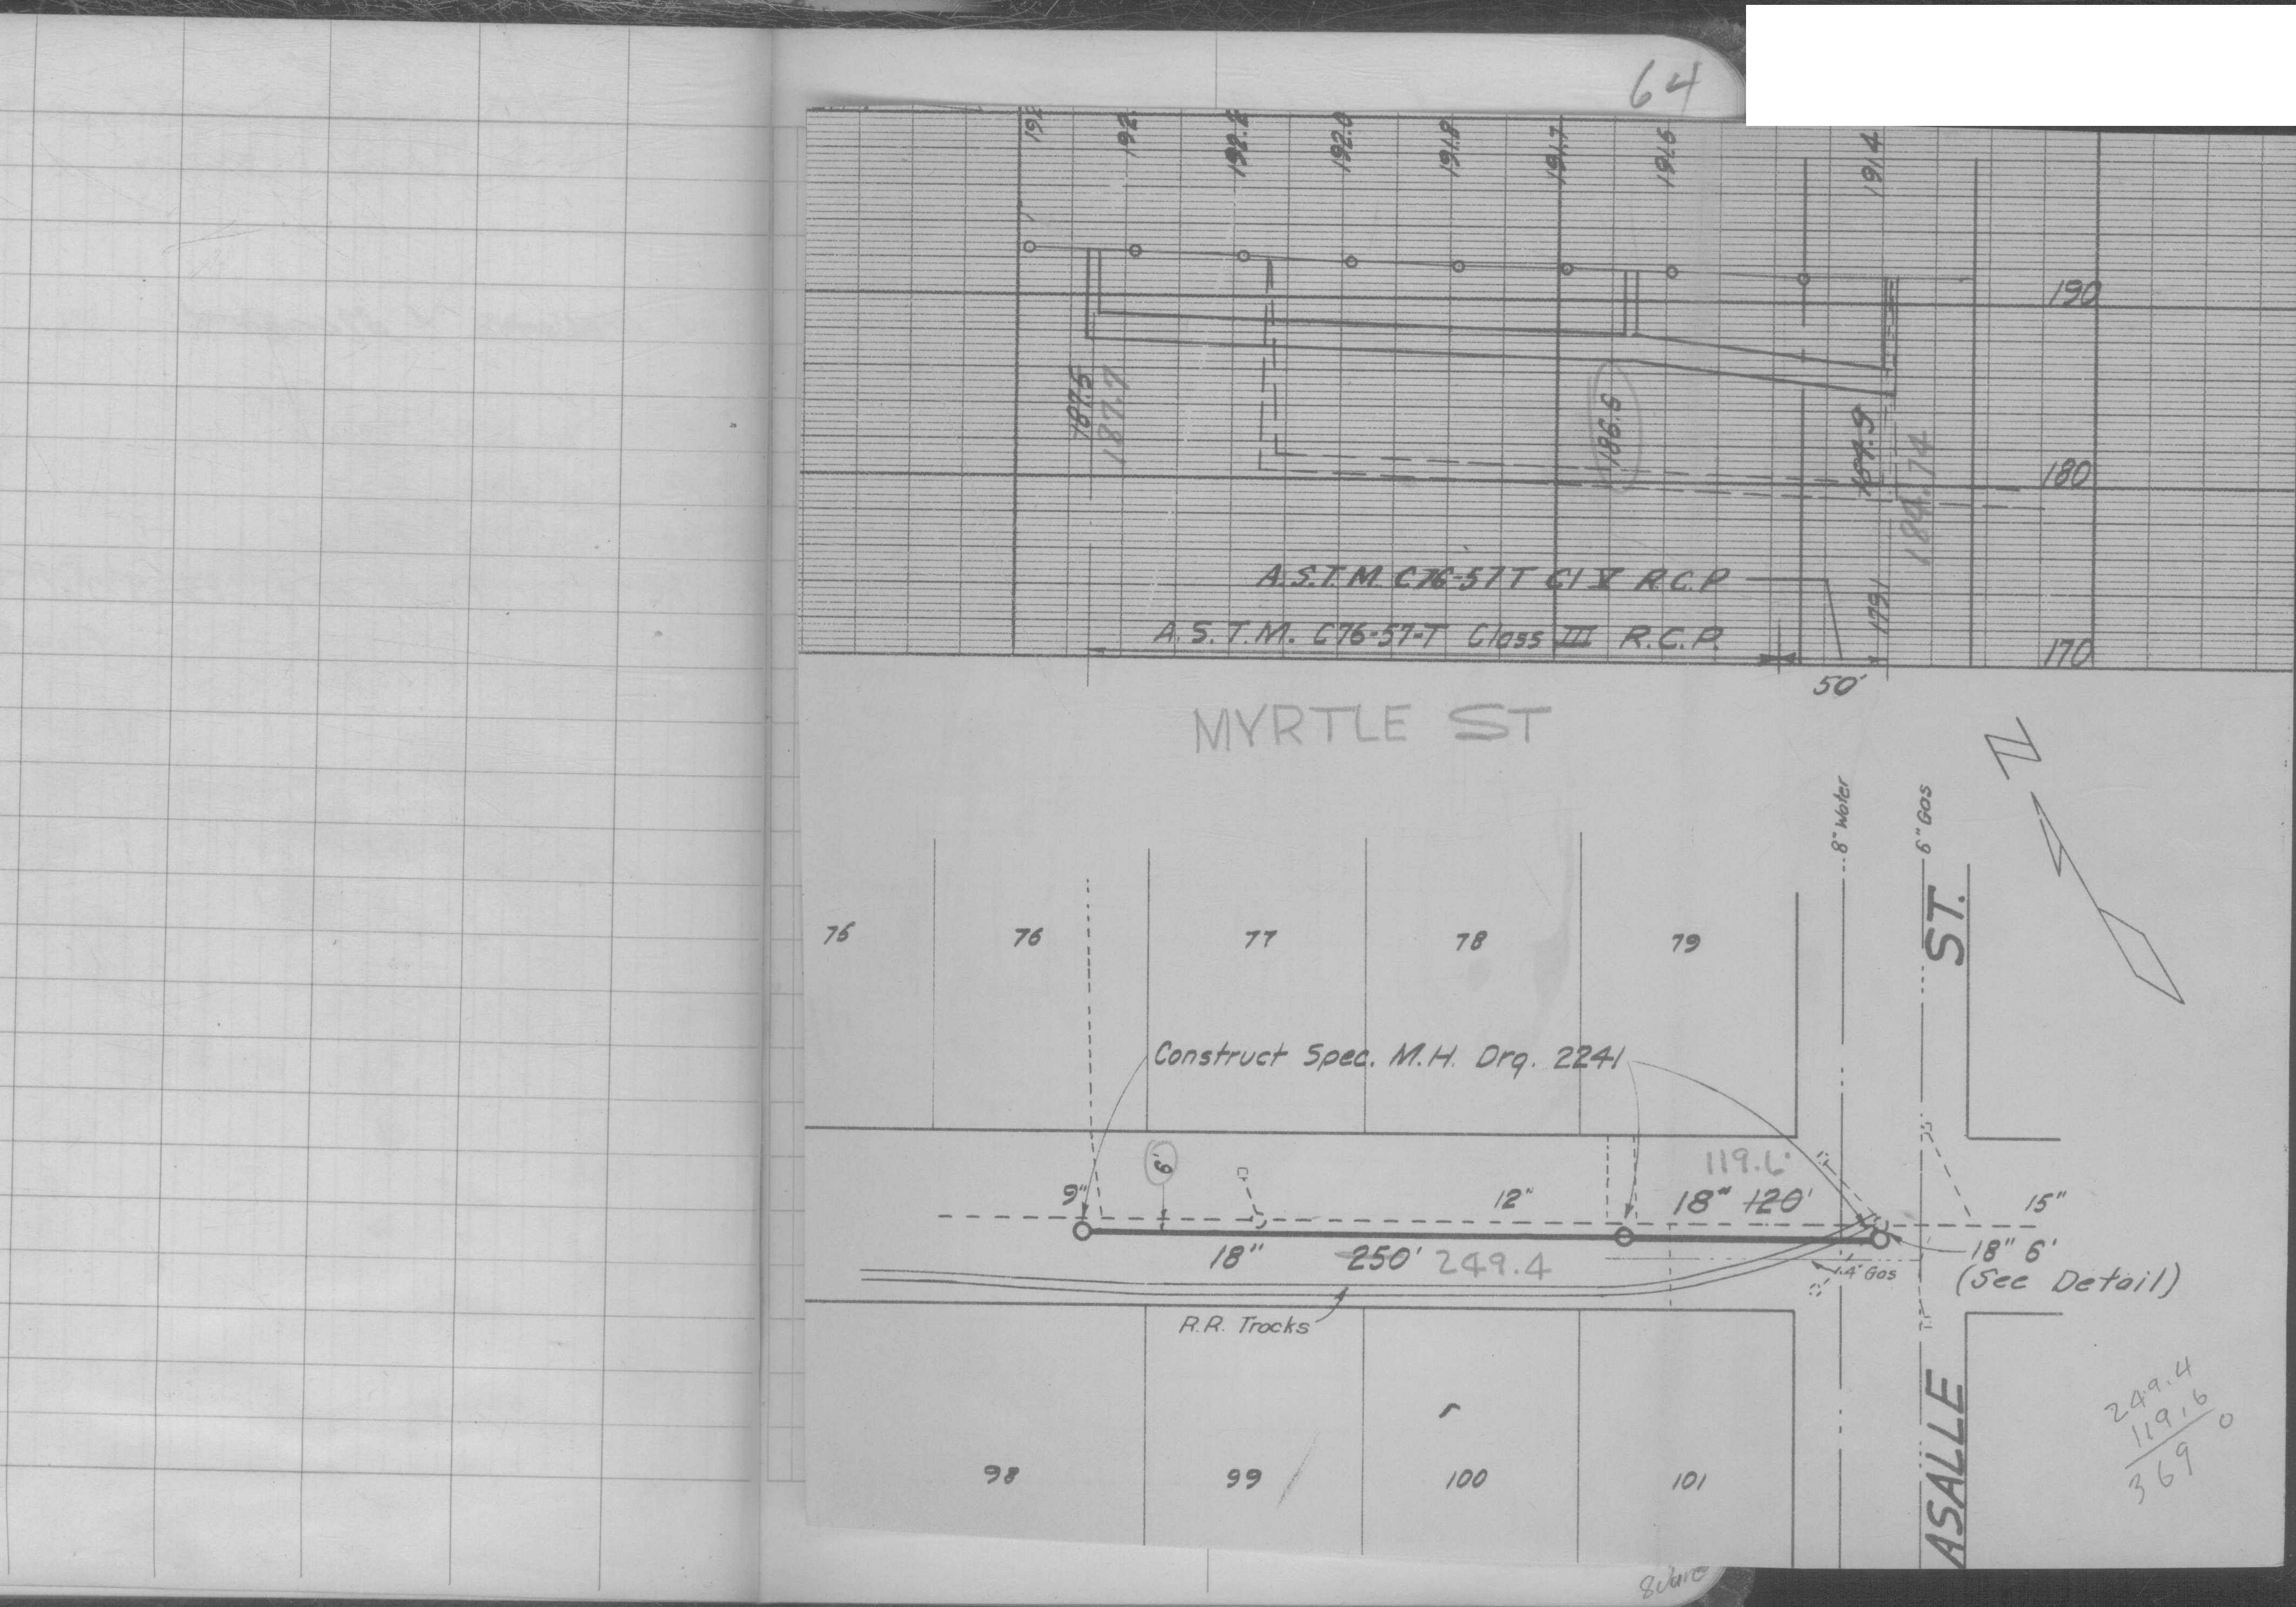 64
192.2
192.0
191.8
191.7
191.6
191.4
190
187.5
187.7
186.6
184.9
184.74
180
A.S.T.M. C76-57T Cl V R.C.P
179.1
A.S.T.M. C76-57-T Class III R.C.P.
170
50'
MYRTLE ST
N
8" Water
6" Gas
ST.
76
76
77
78
79
Construct Spec. M.H. Drg. 2241
6'
119.6'
9"
12"
18" 120'
15"
18"
250' 249.4
18" 6'
4" Gas
(See Detail)
R.R. Tracks
249.4
119.6
369 0
98
99
100
101
ASALLE